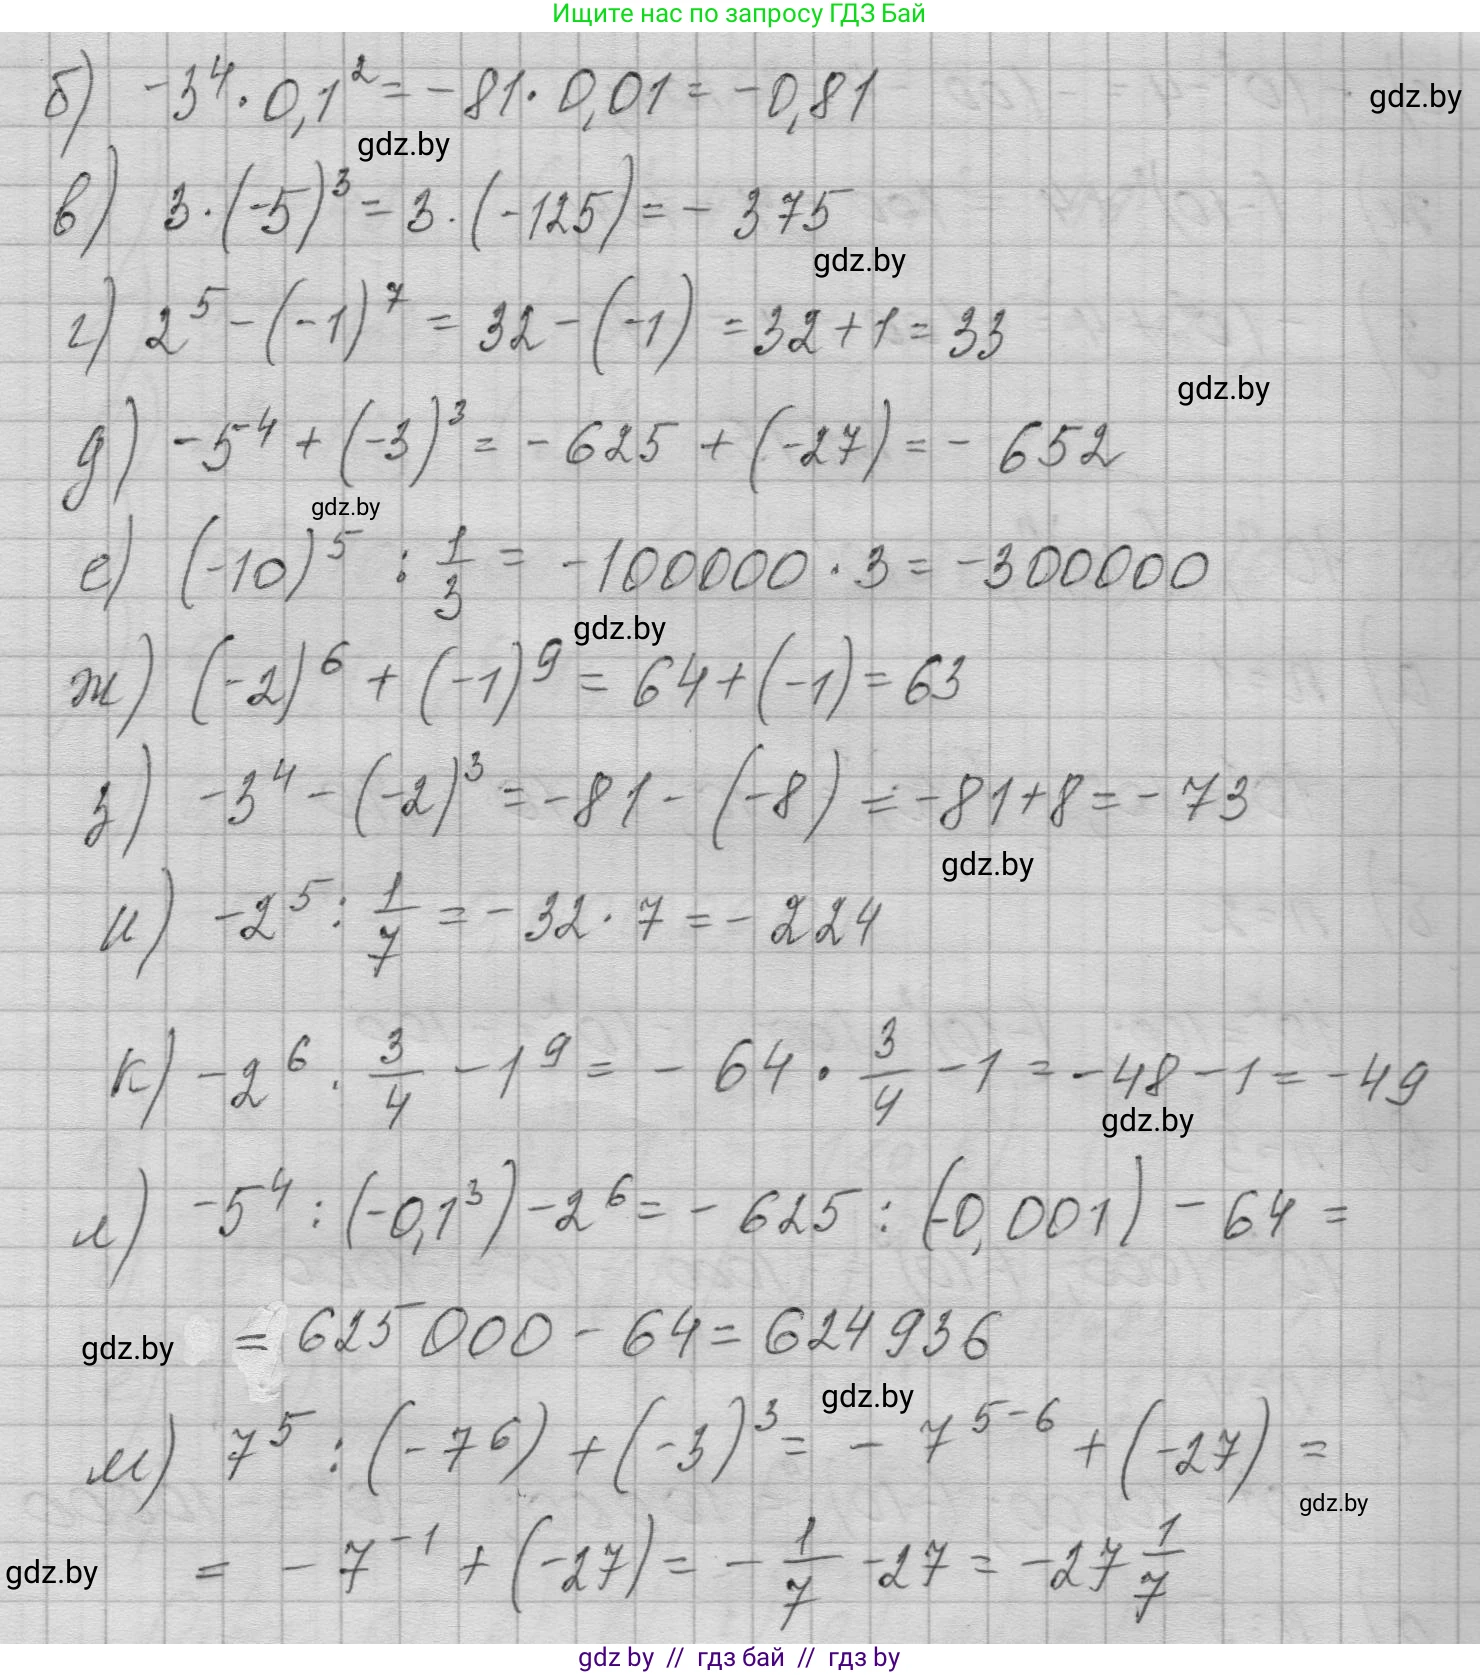 Ищите нас по запросу ГДЗ Бай
б) -3⁴ · 0,1² = -81 · 0,01 = -0,81
gdz.by
gdz.by
в) 3 · (-5)³ = 3 · (-125) = - 375
gdz.by
г) 2⁵ - (-1)⁷ = 32 - (-1) = 32 + 1 = 33
gdz.by
д) -5⁴ + (-3)³ = - 625 + (-27) = - 652
gdz.by
е) (-10)⁵ : 1/3 = -100000 · 3 = -300000
gdz.by
ж) (-2)⁶ + (-1)⁹ = 64 + (-1) = 63
з) -3⁴ - (-2)³ = -81 - (-8) = -81 + 8 = - 73
gdz.by
и) -2⁵ : 1/7 = - 32 · 7 = - 224
к) -2⁶ · 3/4 - 1⁹ = - 64 · 3/4 - 1 = -48 - 1 = -49
gdz.by
л) -5⁴ : (-0,1³) - 2⁶ = - 625 : (-0,001) - 64 =
gdz.by = 625 000 - 64 = 624 936
gdz.by
м) 7⁵ : (-7⁶) + (-3)³ = - 7⁵⁻⁶ + (-27) =
gdz.by
gdz.by = - 7⁻¹ + (-27) = - 1/7 - 27 = -27 1/7
gdz by // гдз бай // гдз by